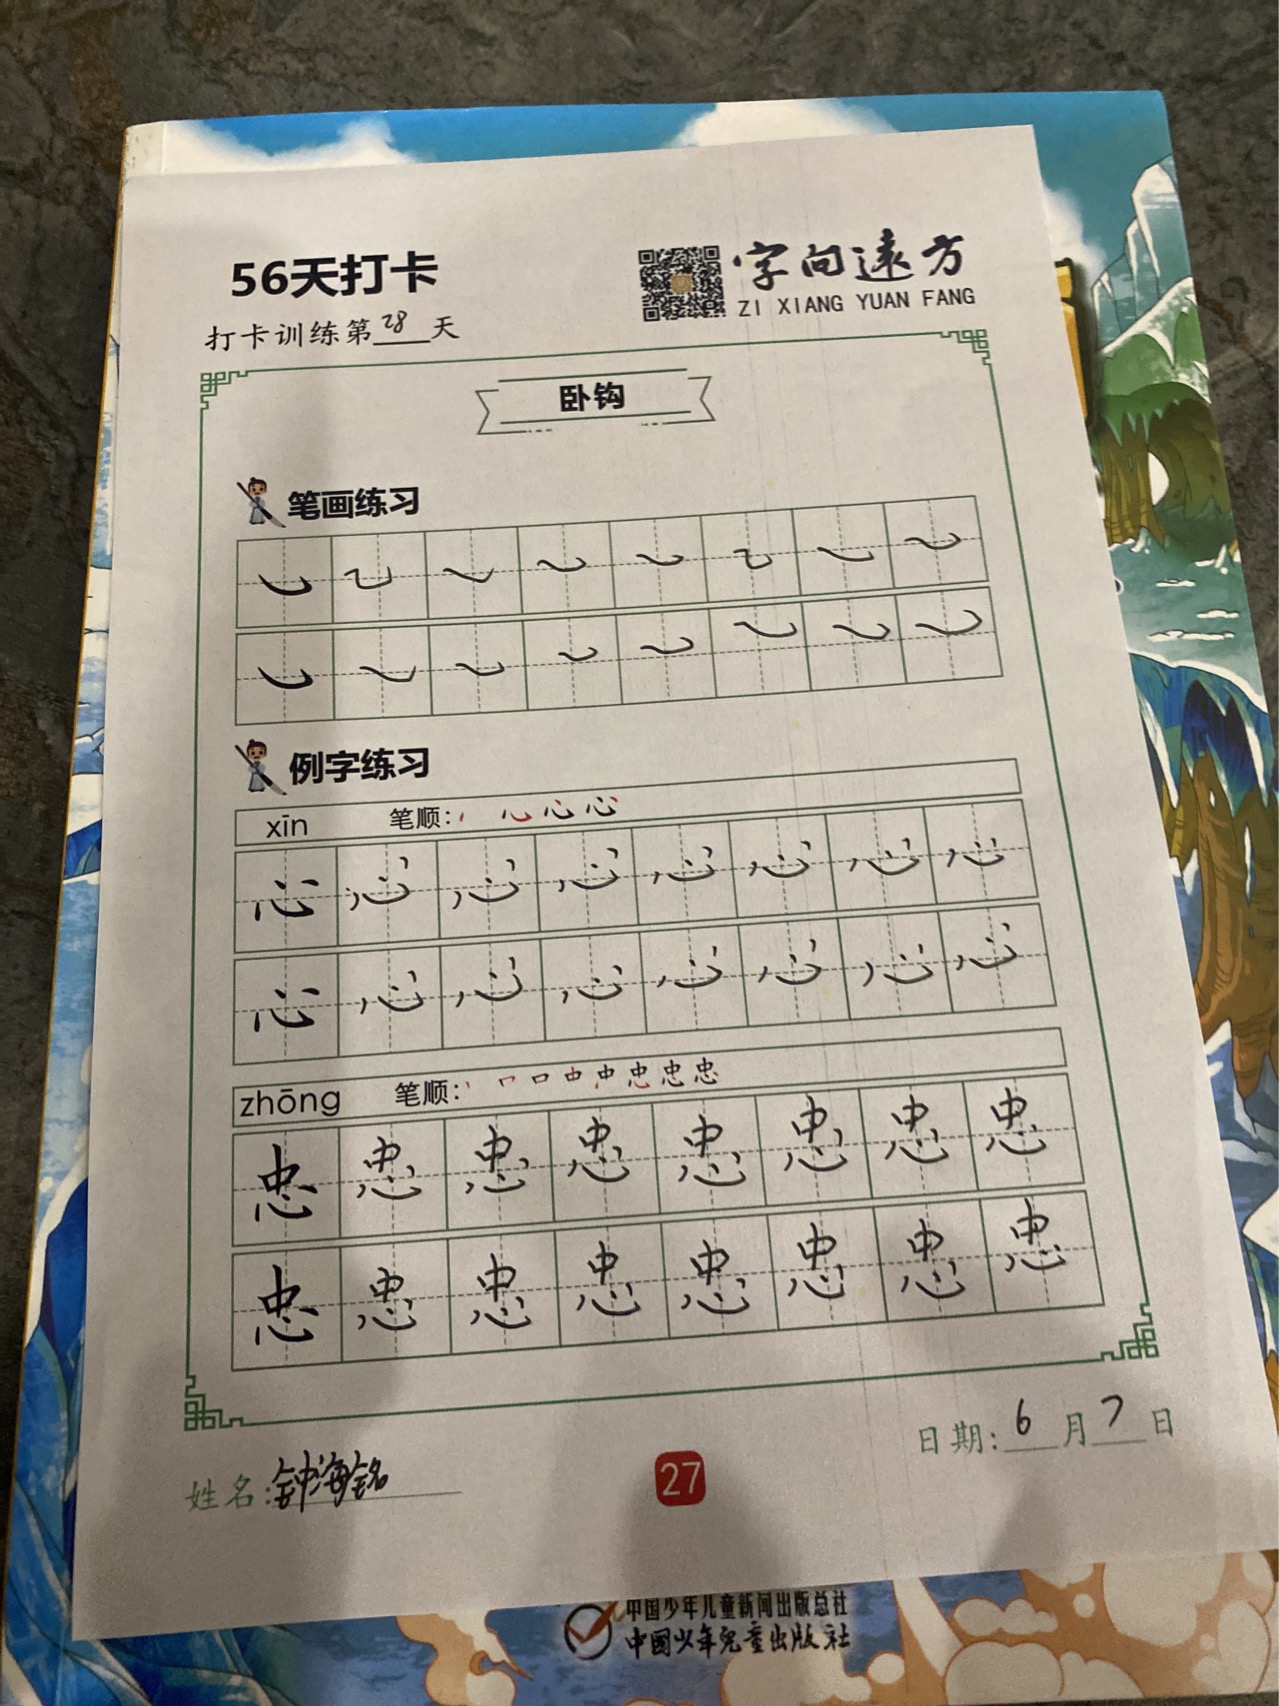 56天打卡
字向遠方
ZI XIANG YUAN FANG
打卡训练第28天
卧钩
笔画练习
例字练习
xīn 笔顺: 心 心 心
心 心 心 心 心 心 心 心
心 心 心 心 心 心 心 心
zhōng 笔顺: 丨 口 口 中 忠 忠 忠 忠
忠 忠 忠 忠 忠 忠 忠 忠
忠 忠 忠 忠 忠 忠 忠 忠
日期: 6月7日
姓名: 钟海铭
27
中国少年儿童新闻出版总社
中国少年儿童出版社